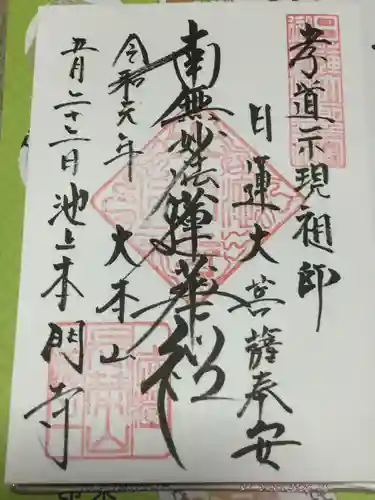 孝道示現祖師
日蓮大菩薩奉安
南無妙法蓮華経
令和元年
大本山
五月二十二日池上本門寺